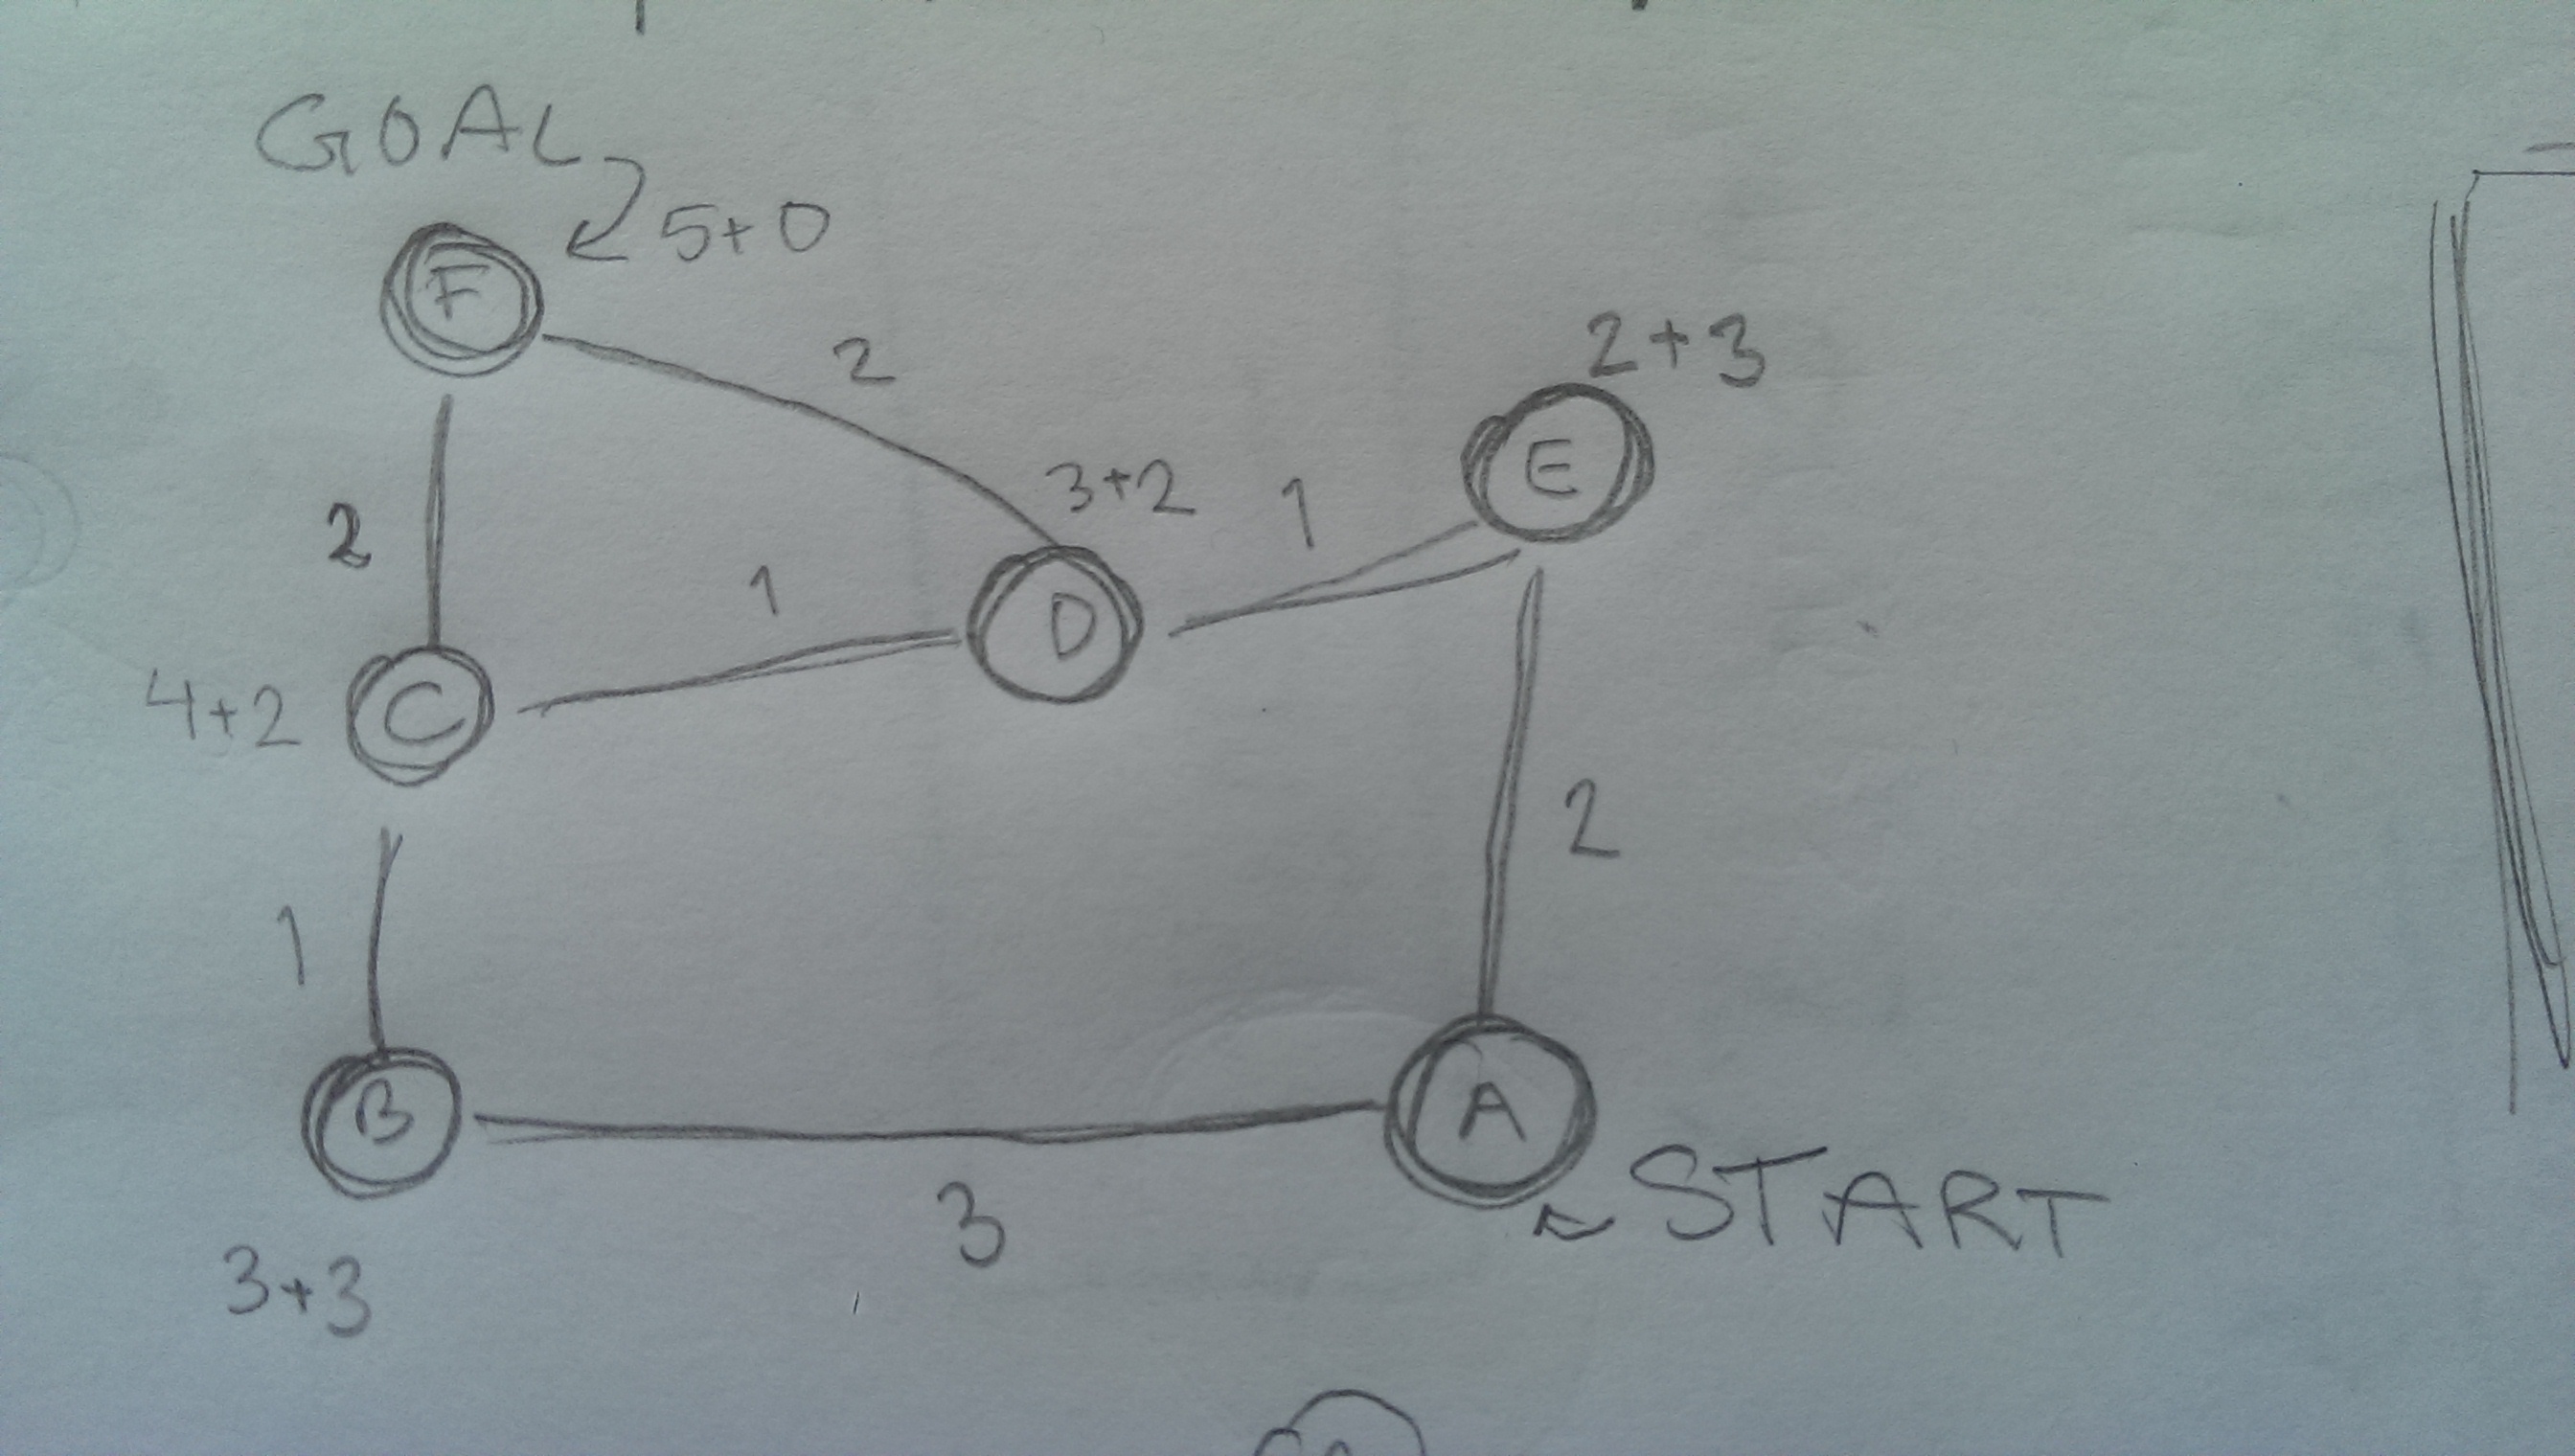 GOAL
5+0
F
2
2+3
E
3+2
1
2
1
D
4+2
C
2
1
B
A
START
3
3+3